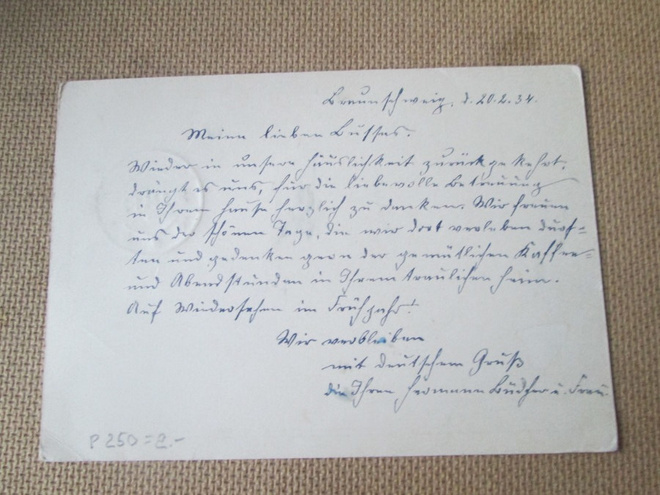 Braunschweig, d. 20.2.34.
Meine lieben Busses.
Wieder in unsere Häuslichkeit zurückgekehrt,
drängt es uns, für die liebevolle Betreuung
in Ihrem Hause herzlich zu danken. Wir freuen
uns der schönen Tage, die wir dort verleben durf-
ten und gedenken gern der gemütlichen Kaffee-
und Abendstunden in Ihrem traulichen Heim.
Auf Wiedersehen im Frühjahr!
Wir verbleiben
mit deutschem Gruß
die Ihren, Hermann u. Frau.
P 250 = 2.-